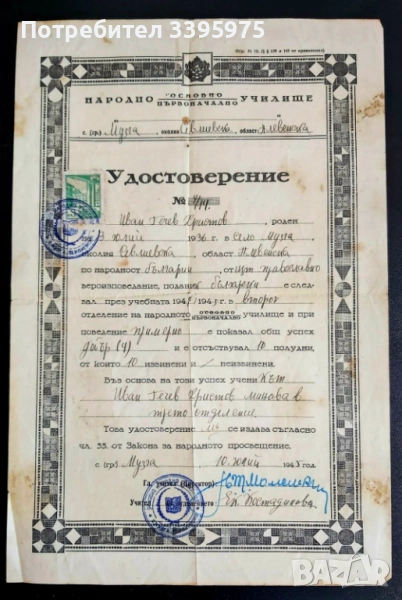 Потребител 3395975
ОСНОВНО
НАРОДНО ПЪРВОНАЧАЛНО УЧИЛИЩЕ
с. (гр.) Музга околия Севлиевска област Плевенска
Удостоверение
№
Иван Гечев Христов, роден
на 3 юлий 1936 г. в село Музга
околия Севлиевска, област Плевенска
по народност българин, от източно православно
вероизповедание, поданик български е следвал
вал през учебната 194 /194 г. в второ
отделение на народното ОСНОВНО ПЪРВОНАЧАЛНО училище и при
поведение примерно е показал общ успех
добър (4) и е отсъствувал 10 полудни,
от които 10 извинени и / неизвинени.
Въз основа на този успех ученикът
Иван Гечев Христов минава в
трето отделение
Това удостоверение му се издава съгласно
чл. 33. от Закона за народното просвещение.
с. (гр.) Музга 10 юлий 1945 год.
Гл. учител (Директор)
Учител
БАЗАР
bazar.bg